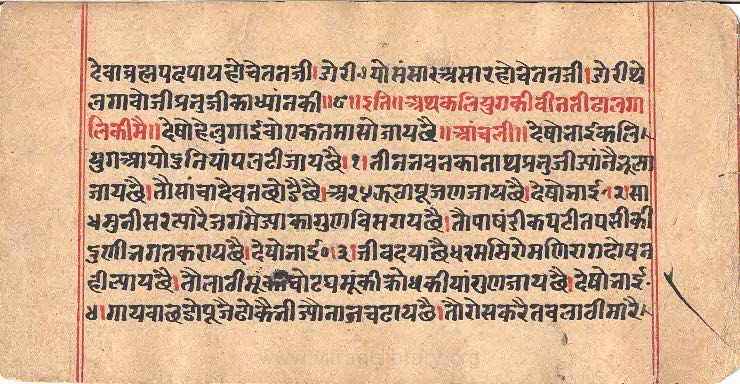 देवाब्रह्मपदपायहोचेतनजी।गेरीयोसंसारअसारहोचेतनजी।गेरीथे
लगावोजीप्रभुजीकाध्यांनकी॥८॥इति॥अथकलियुगकीवीनतीढालगा
लिकीमै॥देषोहेलुगाईचोएकतमासोजायछै॥आंचली॥देषोभाईकलि
युगआयोदुनियांपलटीजायछै।१।तीनभवनकानाथप्रभुजी
जायछै।तौसांचादेवनछोडैछै।पूजणजायछै।देषोभाई॰।२।सा
धमुनीसरत्यारैजगमेज्याकागुणविसरायछै।तौपाषंडीकपटीतपसीकी
गुणीभगतकरायछै।देषोभाई॰।३।जीवदयाछैधरमसिरोमणिरागदोषन
हीत्यायछै।तौलावीक्रोधकीयांराणजायछै।देषोभाई॰
४।गायचाछडोपूजैढोकैनीज्योनाजचटायछै।तौरोसकरैतबलावीमारै